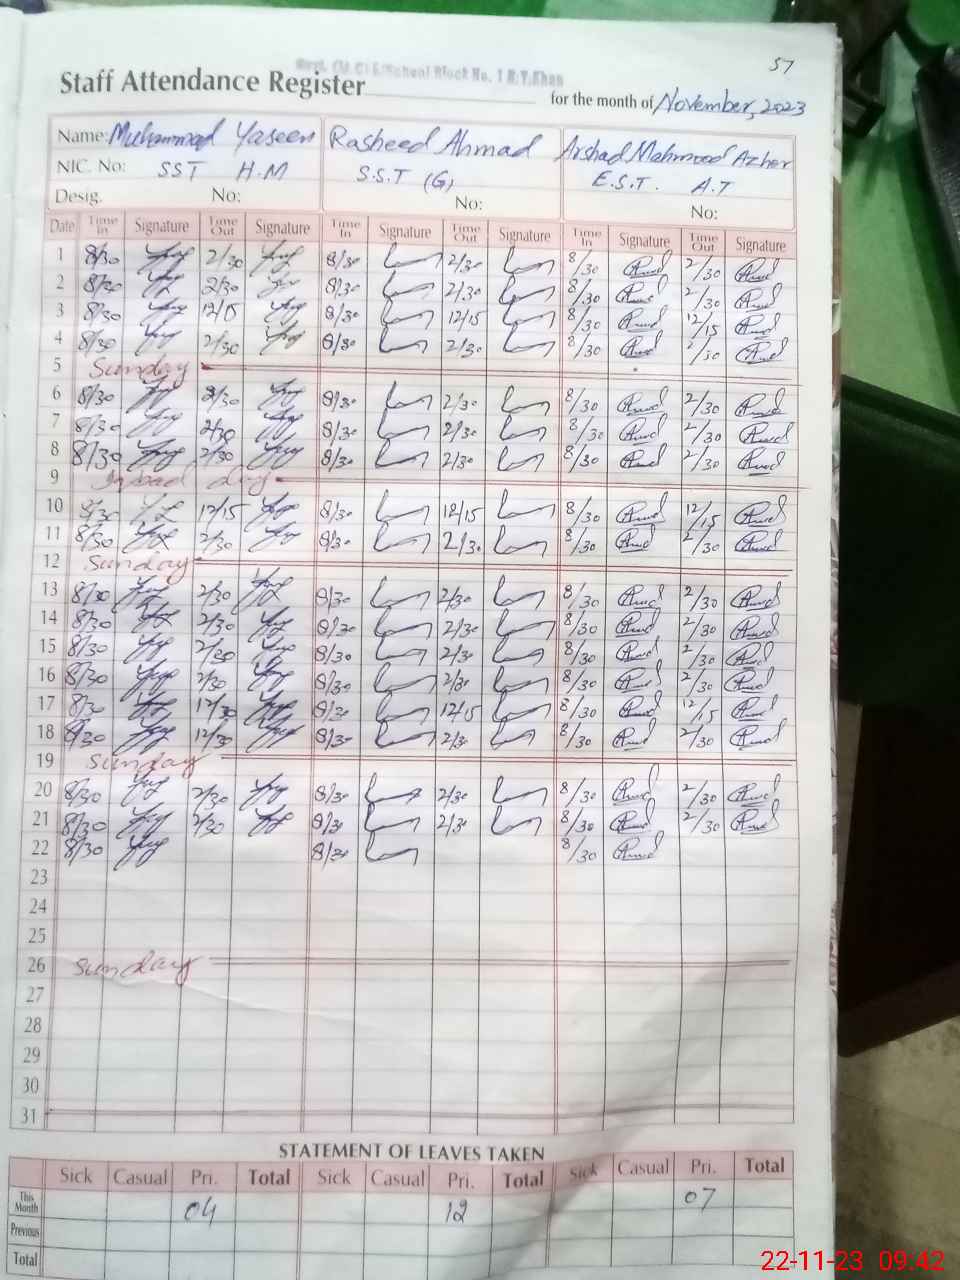 57
Govt. (M.C) E/School Block No. 1 R.Y.Khan
Staff Attendance Register
for the month of November, 2023
Name: Muhammad Yaseen Rasheed Ahmad Arshad Mahmood Azher
NIC. No: SST H.M S.S.T (G) E.S.T. A.T
Desig. No: No: No:
Date Time In Signature Time Out Signature Time In Signature Time Out Signature Time In Signature Time Out Signature
1 8/30 2/30 8/30 2/30 8/30 2/30
2 8/30 2/30 8/30 2/30 8/30 2/30
3 8/30 12/15 8/30 12/15 8/30 12/15
4 8/30 2/30 8/30 2/30 8/30 2/30
5 Sunday
6 8/30 2/30 8/30 2/30 8/30 2/30
7 8/30 2/30 8/30 2/30 8/30 2/30
8 8/30 2/30 8/30 2/30 8/30 2/30
9 Iqbal day
10 8/30 12/15 8/30 12/15 8/30 12/15
11 8/30 2/30 8/30 2/30 8/30 2/30
12 Sunday
13 8/30 2/30 8/30 2/30 8/30 2/30
14 8/30 2/30 8/30 2/30 8/30 2/30
15 8/30 2/30 8/30 2/30 8/30 2/30
16 8/30 2/30 8/30 2/30 8/30 2/30
17 8/30 12/30 8/30 12/15 8/30 12/15
18 8/30 12/30 8/30 2/30 8/30 2/30
19 Sunday
20 8/30 2/30 8/30 2/30 8/30 2/30
21 8/30 2/30 8/30 2/30 8/30 2/30
22 8/30 8/30 8/30
23
24
25
26 Sunday
27
28
29
30
31
STATEMENT OF LEAVES TAKEN
Sick Casual Pri. Total Sick Casual Pri. Total Sick Casual Pri. Total
This Month 04 12 07
Previous
Total
22-11-23 09:42